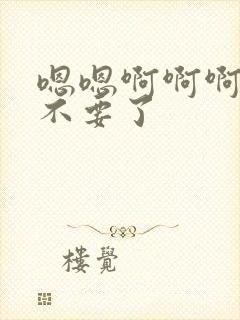 嗯嗯啊啊啊
不要了
楼觉